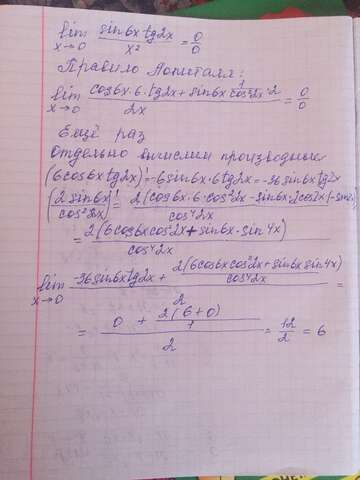 lim x→0 sin6x tg2x / x² = 0/0
Правило Лопиталя:
lim x→0 (cos6x·6·tg2x + sin6x 1/cos²2x ·2) / 2x = 0/0
Ещё раз
Отдельно вычислим производные
(6cos6x tg2x)' = -6sin6x·6tg2x = -36sin6x tg2x
(2sin6x / cos²2x)' = 2(cos6x·6·cos²2x - sin6x·2cos2x(-sin2x / cos⁴2x
= 2(6cos6x cos²2x + sin6x·sin4x) / cos⁴2x
lim x→0 (-36sin6x tg2x + 2(6cos6x cos²2x + sin6x sin4x) / cos⁴2x) / 2 =
= (0 + 2(6+0) / 1) / 2 = 12/2 = 6